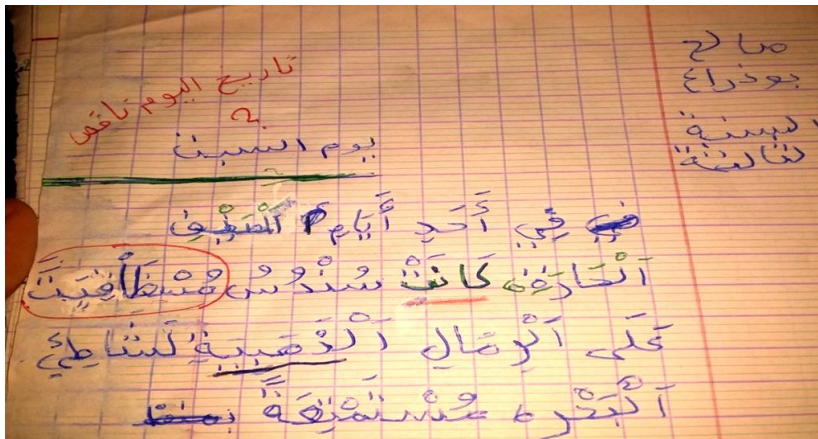 صالح
بوذراع
السنة
الثالثة
تاريخ اليوم ناقص
؟
يوم السبت
في أَحَدِ أَيَّامِ اَلْصَّيْفِ
اَلْحَارَةِ، كَانَتْ سُنْدُسُ
عَلَى اَلْرِمَالِ اَلْذَهَبِيَةِ لَشَاطِئِ
اَلْبَحْرِ، مُسْتَمْتِعَةً